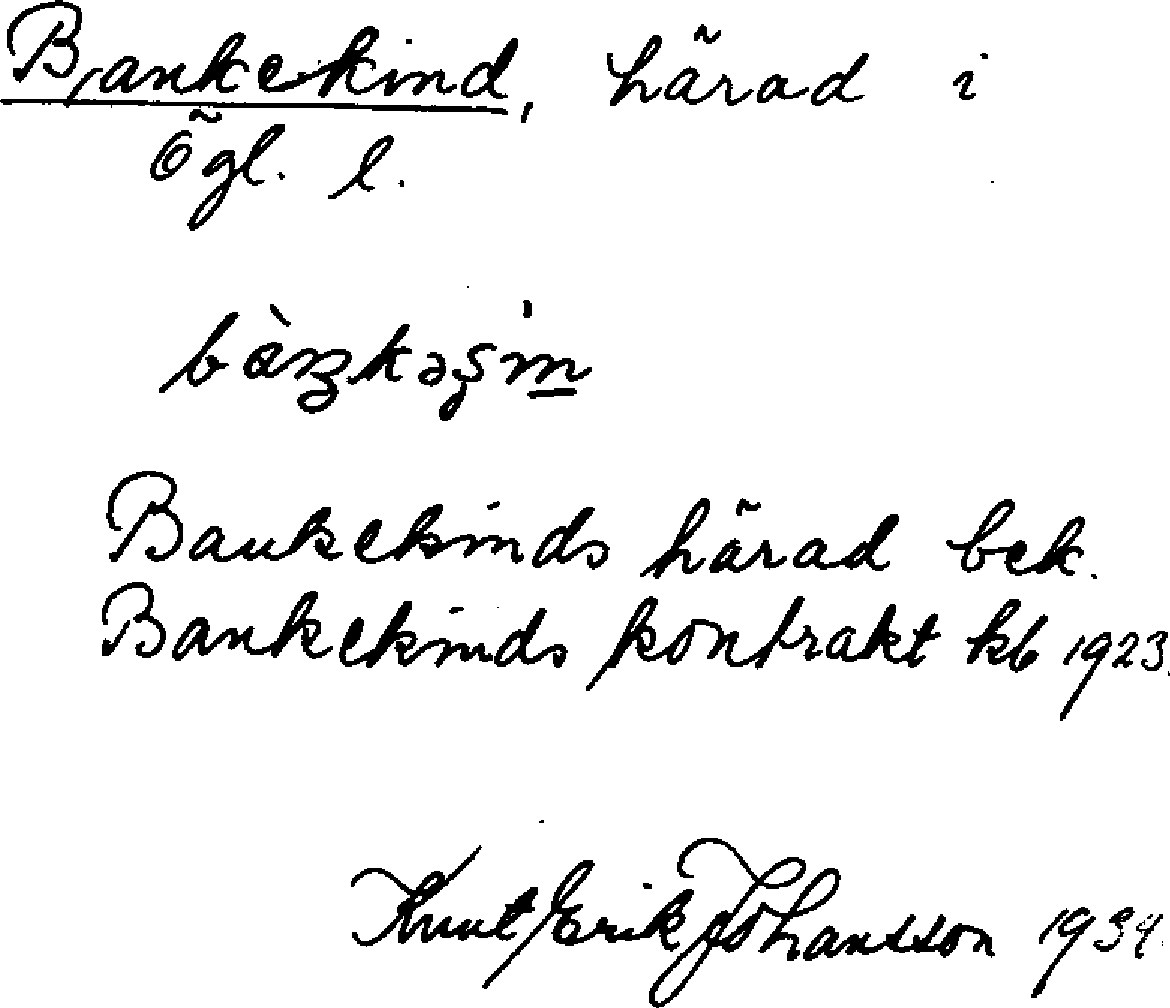 Bankekind, härad i
Ögl. l.
Bankekinds härad bek.
Bankekinds kontrakt kb 1923.
Knut Erik Johansson 1934.